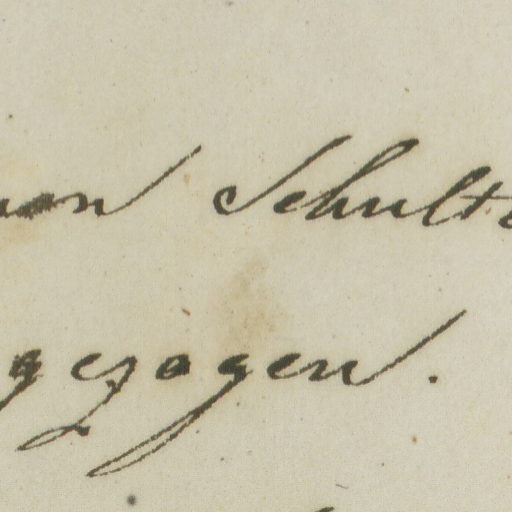 von Schulte
gezogen.